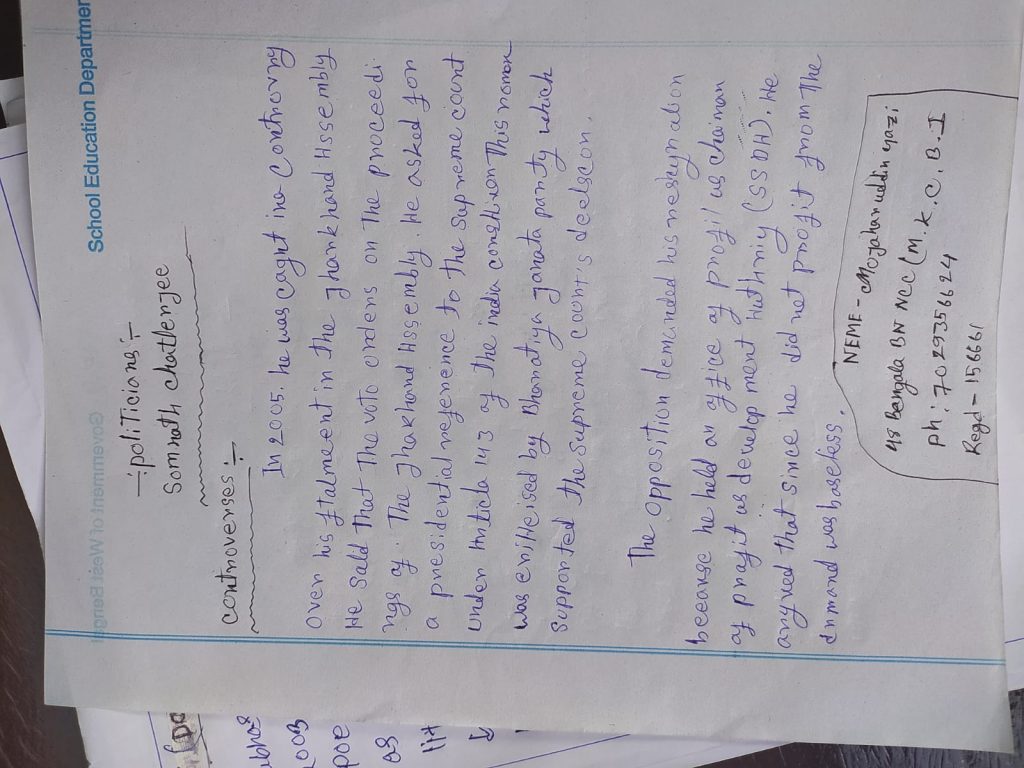 School Education Departmen
Government of West Bengal
÷politicions÷
Somnath chatlerjee
controverses÷
In 2005. he was cagnt ina Contnonny
Oven his statment in the Jhankhand Assembly
He Sald That The voto ondens on The proceedi
ngs of. The Jhakhand Assembly. He asked fon
a pnesidential nefenence to the Supneme count
Unden Anticle 143 of the india constition This nomon
was enitieised by Bhanatiya janata panty which
Supponted the Supneme count's deelscon.
The opposition demanded his nesignabion
beeange he held an office of profil us chaiman
of pnofit us develop ment Authniy (SSDH). He
angned that since he did not pnofit fnom The
dnmand was baseless.
NEME-Mojaharuddin gazi
48 Bengala BN NCC (M.K.C.B.I
ph: 7029356624
Regd-156661
ubhas
2003
poe
as